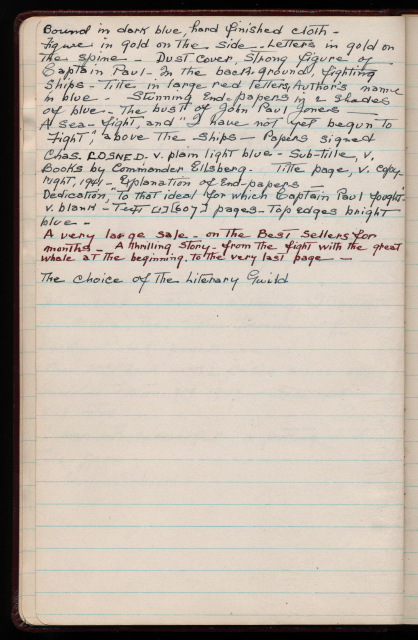 Bound in dark blue, hard finished cloth -
Figure in gold on the side - Letters in gold on
the spine - Dust cover, strong figure of
Captain Paul - In the back-ground, fighting
ships - Title in large red letters, Author's name
in blue - Stunning End-papers in 2 shades
of blue - The bust of John Paul Jones -
A sea-fight, and "I have not yet begun to
fight", above the ships - Papers signed
Chas. v. plain light blue - Sub-title, v,
Books by Commander Ellsberg - Title page, v. copy-
right, 1941 - Explanation of End-papers -
Dedication, To that ideal for which Captain Paul fought
v. blank - Text [1] [607] pages - Top edges bright
blue -
A very large sale - on the Best Sellers for
months - A thrilling story - from the fight with the great
whale at the beginning, to the very last page -
The choice of the Literary Guild